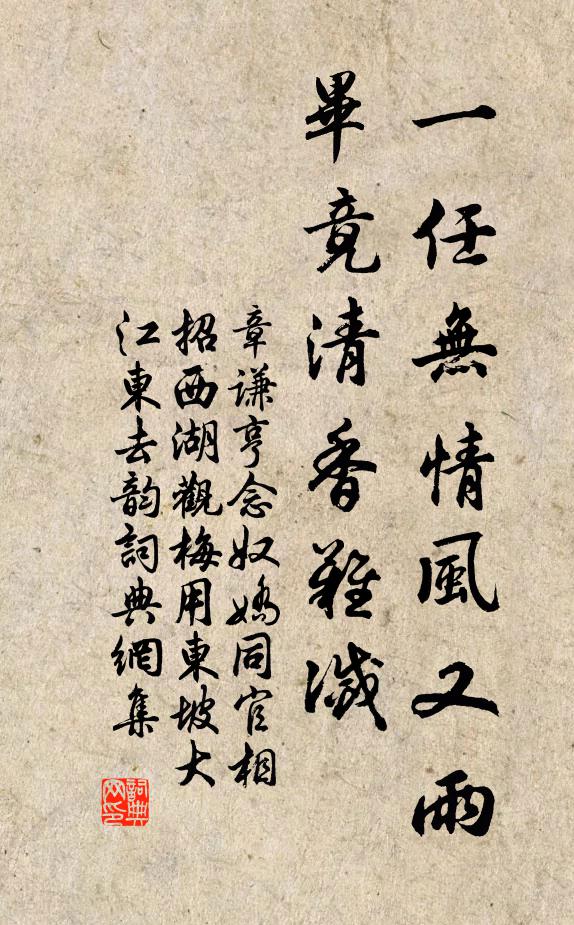 一任無情風又雨
畢竟清香難滅
章謙亨念奴嬌同官相
招西湖觀梅用東坡大
江東去韵詞典網集
詞典
网印